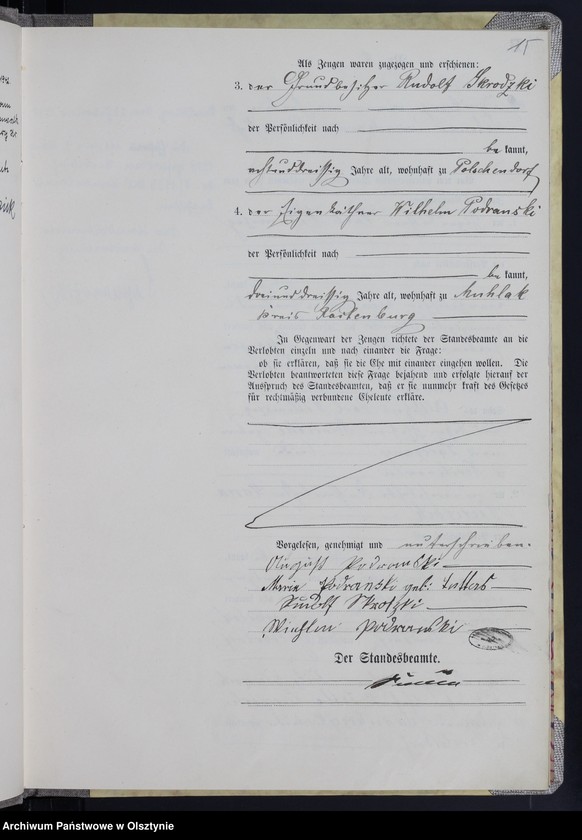 15
Als Zeugen waren zugezogen und erschienen:
3. der Grundbesitzer Rudolf Skrodzki
der Persönlichkeit nach
be kannt,
achtunddreissig Jahre alt, wohnhaft zu Polschendorf
4. der Eigenkäthner Wilhelm Podranski
der Persönlichkeit nach
be kannt,
dreiunddreissig Jahre alt, wohnhaft zu Muhlak
Kreis Rastenburg
In Gegenwart der Zeugen richtete der Standesbeamte an die
Verlobten einzeln und nach einander die Frage:
ob sie erklären, daß sie die Ehe mit einander eingehen wollen. Die
Verlobten beantworteten diese Frage bejahend und erfolgte hierauf der
Ausspruch des Standesbeamten, daß er sie nunmehr kraft des Gesetzes
für rechtmäßig verbundene Eheleute erkläre.
Vorgelesen, genehmigt und unterschrieben.
August Podranski
Marie Podranski geb:
Rudolf Skrotzki
Podranski
Der Standesbeamte.
Archiwum Państwowe w Olsztynie